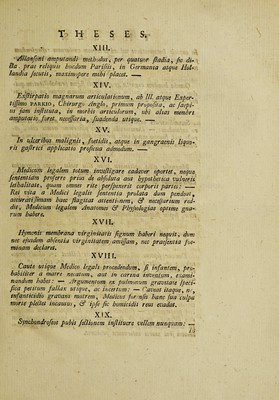 THESES.
XIII.
Allansoni amputandi methodus, per quatuor stadia, sic di-
cta prae reliquis laudum Parisiis, in Germania atque Hol-
landia secutis, maximopere mihi placet. —
XIV.
Exstirpatio magnarum articulationum, ab Ill. atque Exper-
tissimo PARKIO, Chirurgo Anglo, primum proposita, ac saepi-
us jam instituta, in morbis articulorum, ubi alias membri
amputatio foret necessaria, suadenda utique. —
XV.
In ulceribus malignis, foetidis, atque in gangraenis liquo-
ris gastrici applicatio proficua admodum. —
XVI.
Medicum legalem totum investigare cadaver oportet, novus
sententiam proferre prius de absoluta aut hypothetica vulneris
lethalitate, quam omnes rite perspexerit corporis partes: —
Rei vita a Medici legalis sententia prolata dum pendeat,
accuratissimam haec flagitat attentionem, & necessarium red-
dit, Medicum legalem Anatomes & Physiologias optime gna-
rum habere.
XVII.
Hymenis membrana virginitatis signum haberi nequit, dum
nec ejusdem absentia virginitatem amissam, nec praesentia foe-
minam declaret.
XVIII.
Caute utique Medico legali procedendum, si infantem, pro-
babiliter a matre necatum, aut in cavea inventum, exami-
nandum habet: — Argumentum ex pulmonum gravitate speci-
fica petitum fallax utique, ac incertum: — Caveat itaque, ne,
infanticidio gravans matrem, Medicus forensis hanc sua culpa
mortis plectet incautus, & ipse sic homicidii reus evadat.
XIX.
Synchondroseos pubis sectionem instituere vellem nunquam: —